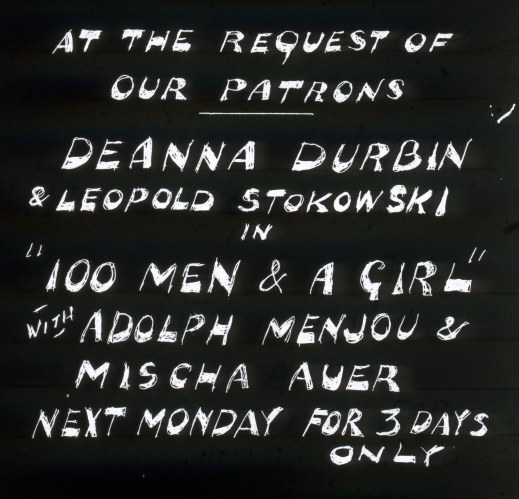 AT THE REQUEST OF
OUR PATRONS
DEANNA DURBIN
& LEOPOLD STOKOWSKI
IN
"100 MEN & A GIRL"
WITH ADOLPH MENJOU &
MISCHA AUER
NEXT MONDAY FOR 3 DAYS
ONLY